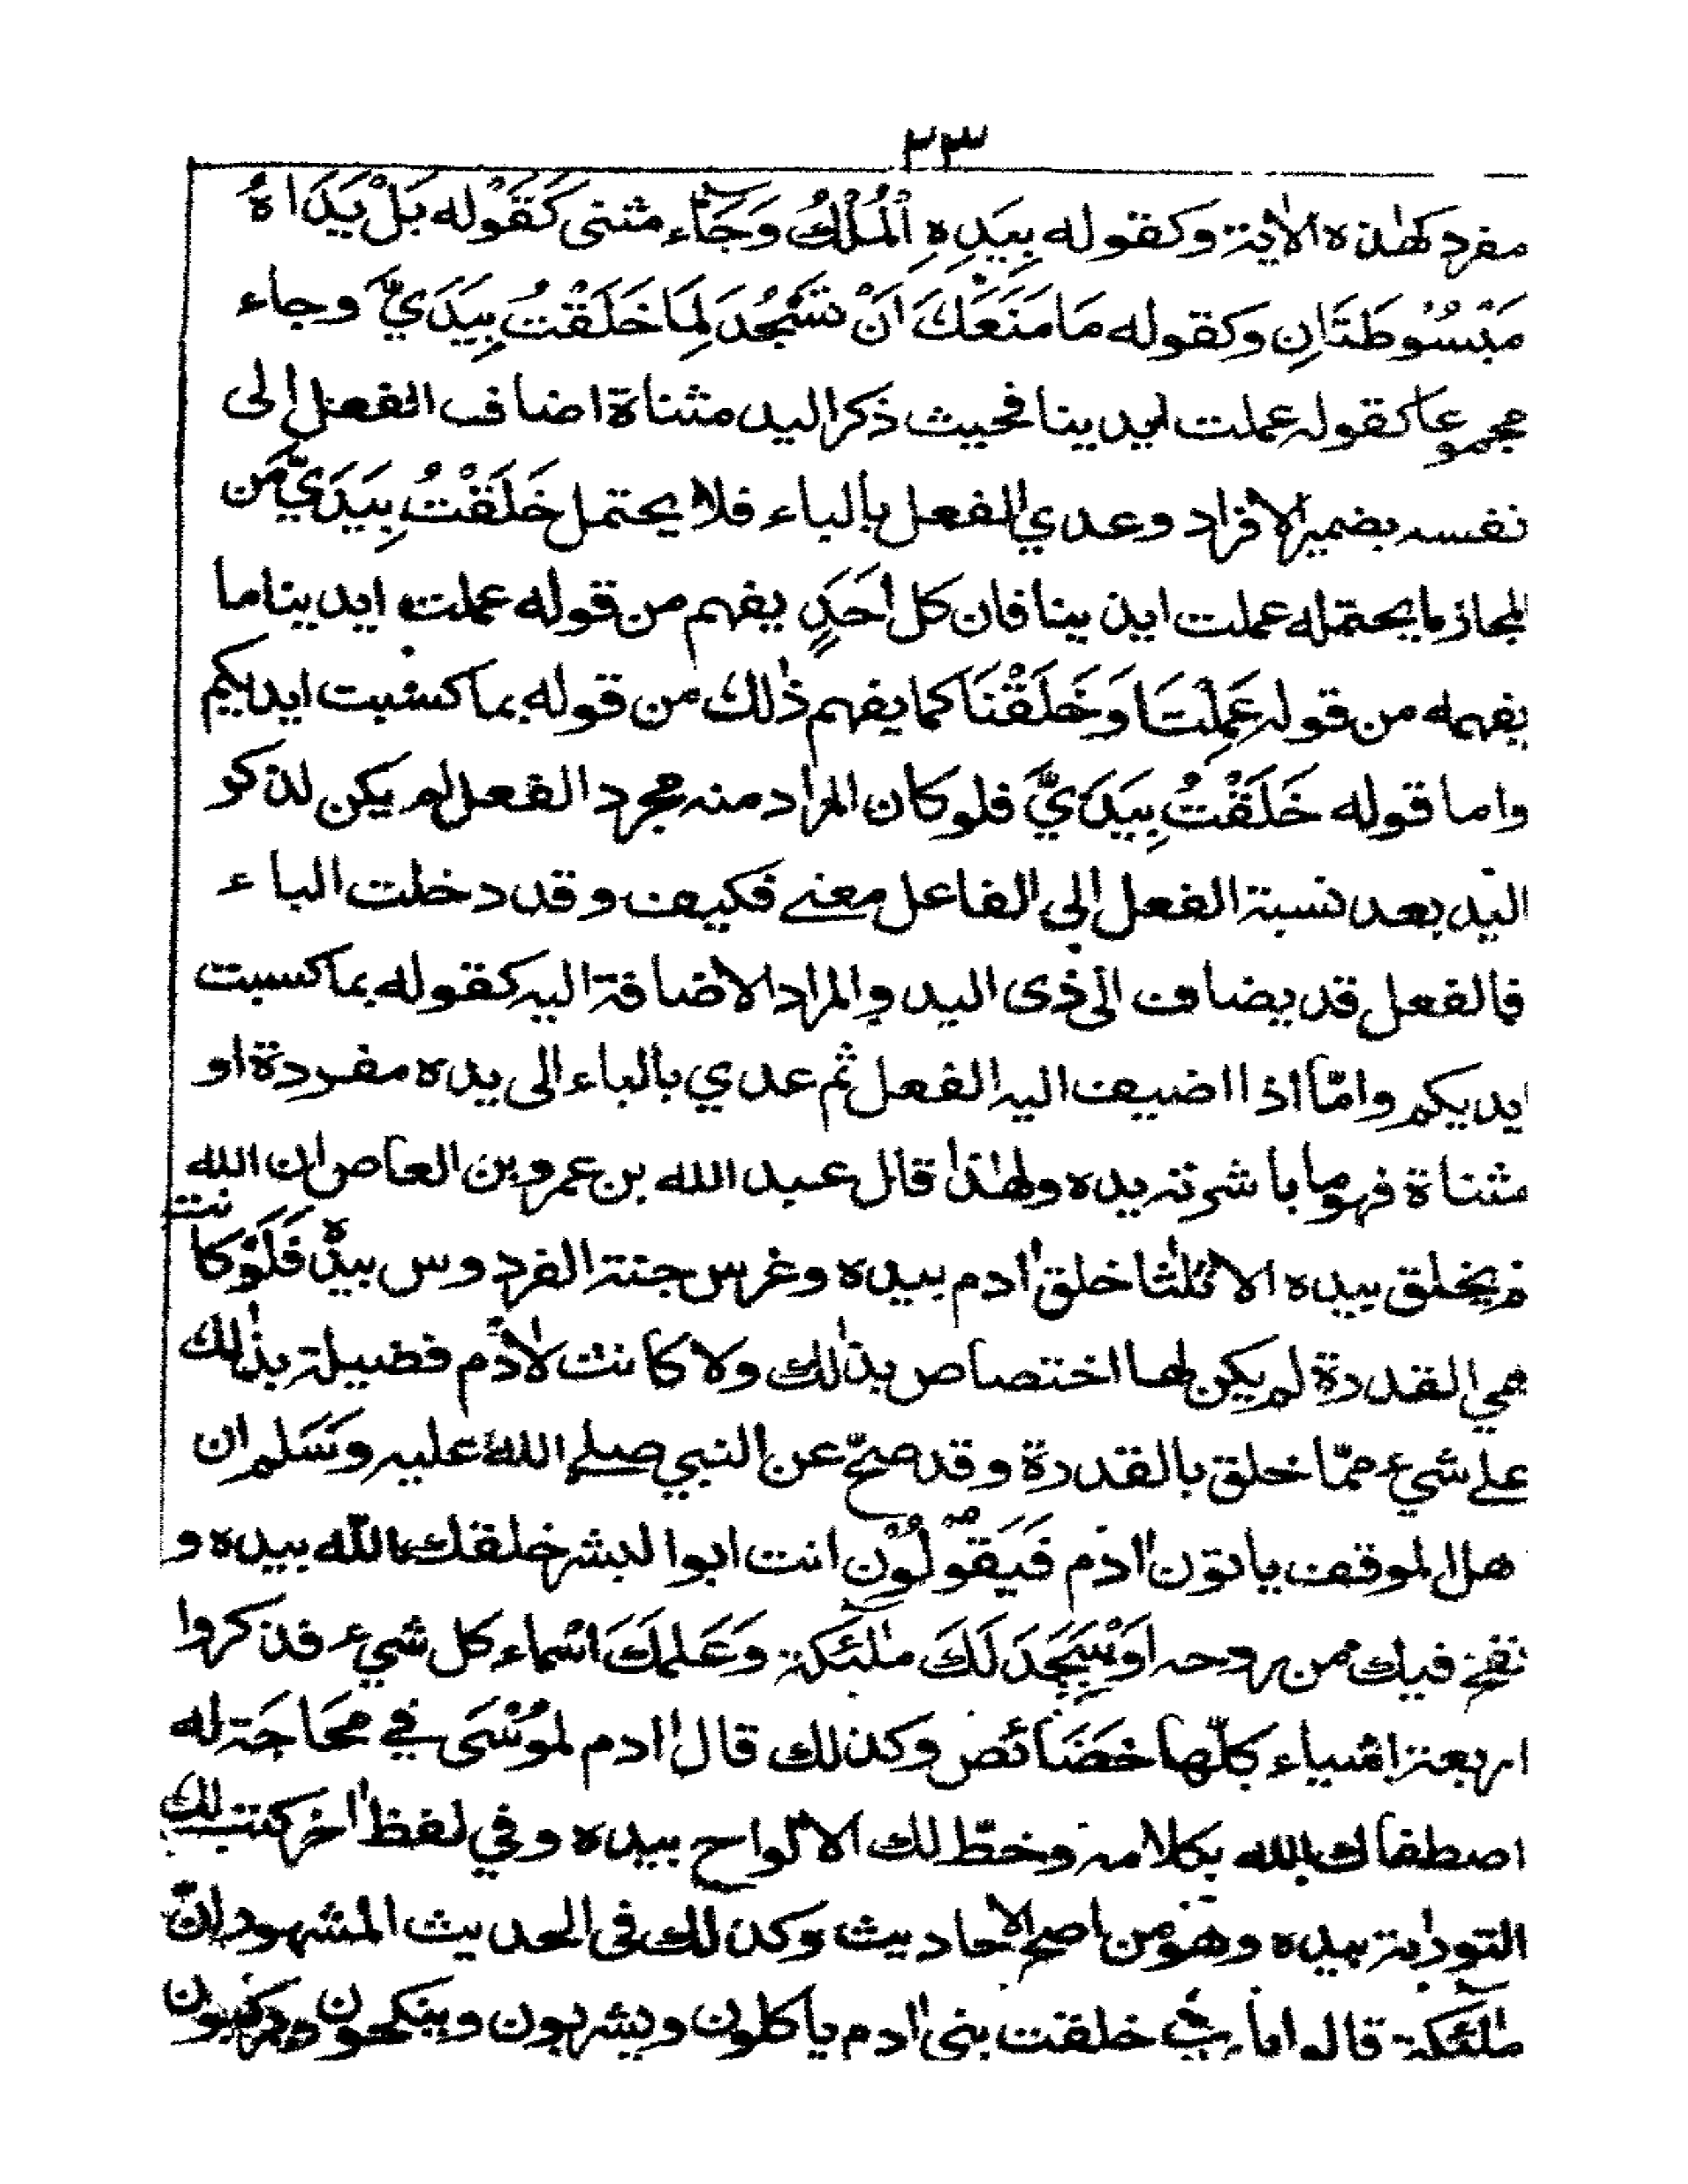 ٢٣
مفرد كهٰذه الاٰية وكقوله بِيَدِهِ الْمُلْكُ وَجَاء مثنى كَقَوْله بَلْ يَدَاهُ
مَبْسُوْطَتَانِ وكقوله مَا مَنَعَكَ اَنْ تَسْجُدَ لِمَا خَلَقْتُ بِيَدَيَّ وجاء
مجموعا كقوله عملت ايدينا فحيث ذكر اليد مثناة اضاف الفعل الى
نفسه بضمير الافراد وعدي الفعل بالباء فلا يحتمل خَلَقْتُ بِيَدَيَّ مَن
المجاز ما يحتمله عملت ايدينا فان كل اَحَدٍ يفهم من قوله عملت ايدينا ما
يفهمه من قوله عَمِلْتَا وَخَلَقْنَا كما يفهم ذٰلك من قوله بما كسبت ايديكم
واما قوله خَلَقْتُ بِيَدَيَّ فلو كان المراد منه مجرد الفعل لم يكن لذكر
اليد بعد نسبة الفعل الى الفاعل معنے فكيف وقد دخلت الباء
فالفعل قد يضاف الى ذى اليد والمراد الاضافة اليه كقوله بما كسبت
ايديكم وامّا اذا اضيف اليه الفعل ثم عدي بالباء الى يده مفردة او
مثناة فهو ما باشرته يده ولهٰذا قال عبد الله بن عمرو بن العاص ان الله
لم يخلق بيده الا ثلٰثا خلق اٰدم بيده وغرس جنة الفردوس بيده فَلَوْ كانت
هي القدرة لم يكن لها اختصاص بذٰلك ولا كانت لاٰدم فضيلة بذٰلك
علے شيء ممّا خلق بالقدرة وقد صحّ عن النبي صلے الله عليه وسَلم ان
هل الموقف ياتون اٰدم فَيَقُوْلُوْن انت ابوا البشر خلقك الله بيده و
نفخ فيك من روحه اَوْ سَجَدَ لَكَ ملٰئكة وَعَلمَكَ اسْماء كل شيء فذكروا
اربعة اشياء كلّها خصَائص وكذلك قال اٰدم لموْسَى في محَاجَة له
اصطفاك الله بكلامه وخطّ لك الالواح بيده وفي لفظ اٰخر كتب لك
التورٰية بيده وهو من اصح الاحاديث وكذلك فى الحديث المشهور انّ
ملٰئكة قالوا يا رب خلقت بنى اٰدم ياكلون ويشربون وينكحون ويركبون